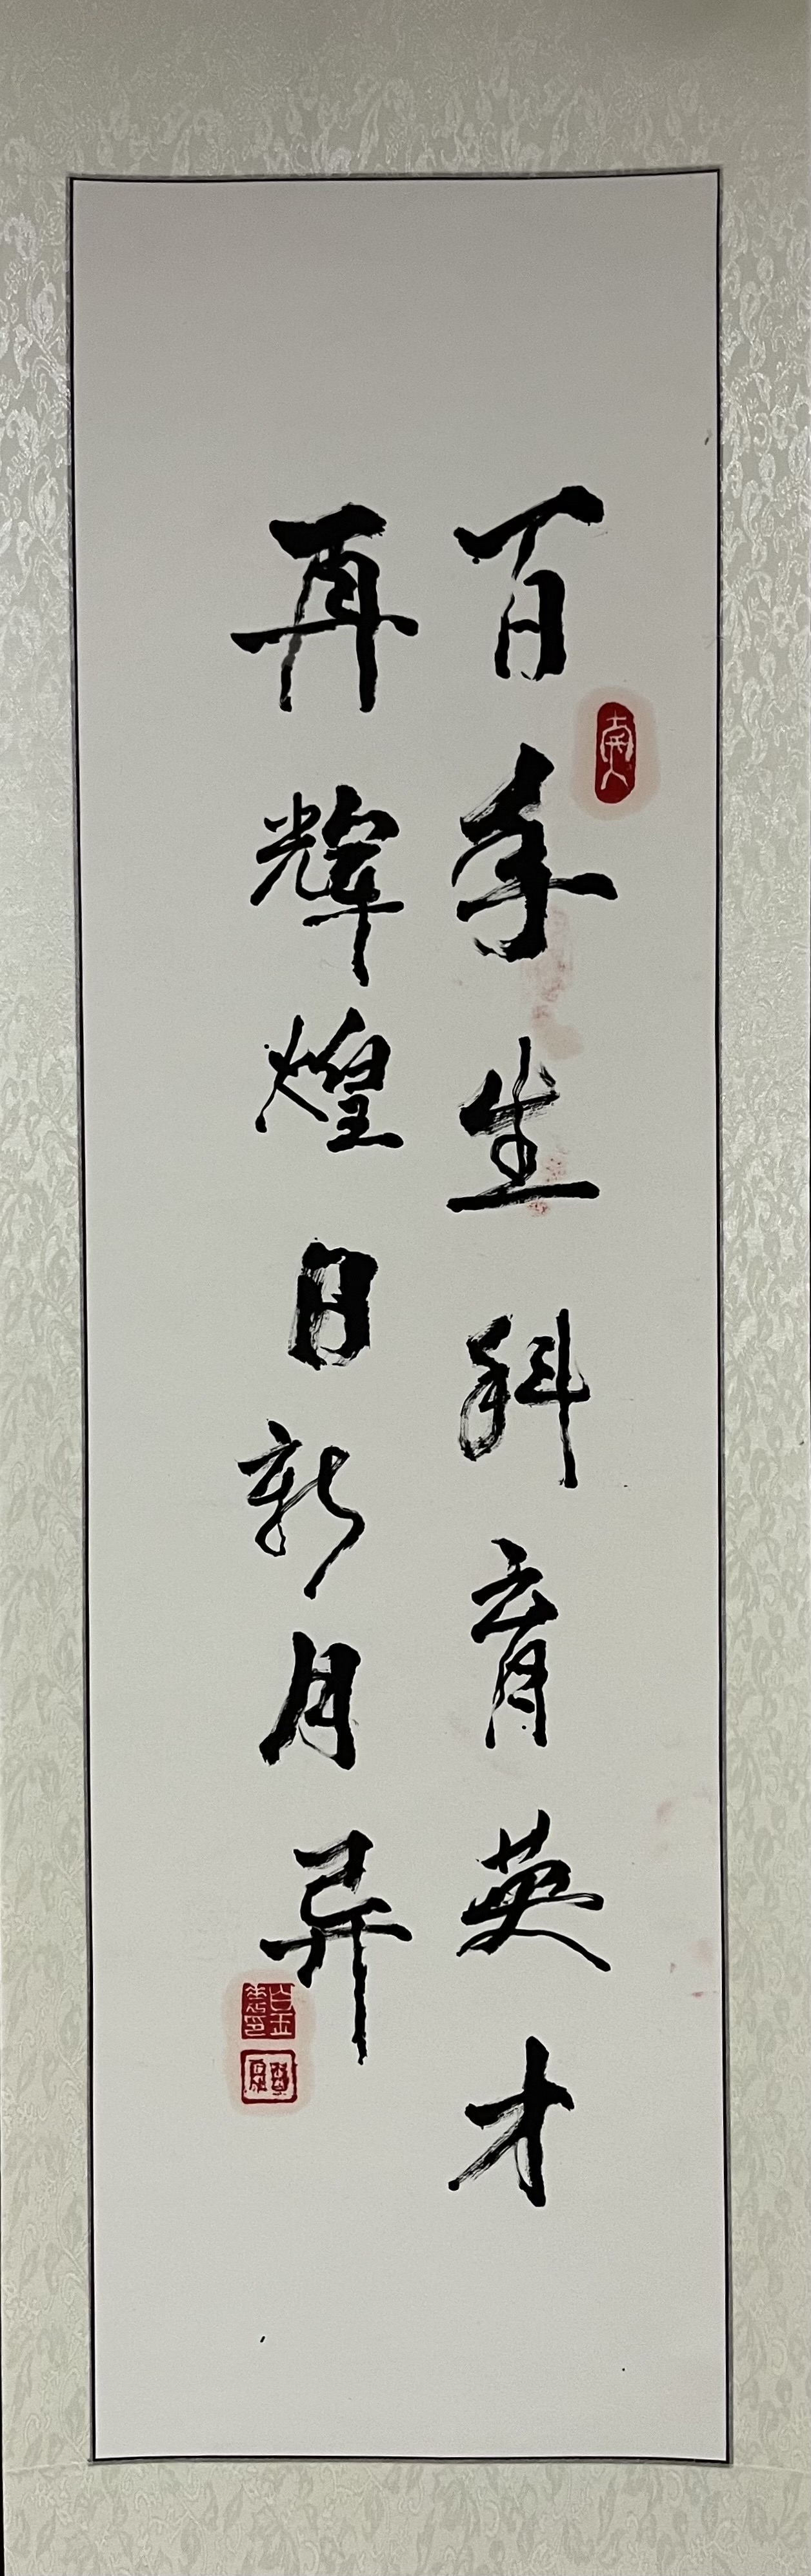 百年生科育英才
再辉煌日新月异
南人